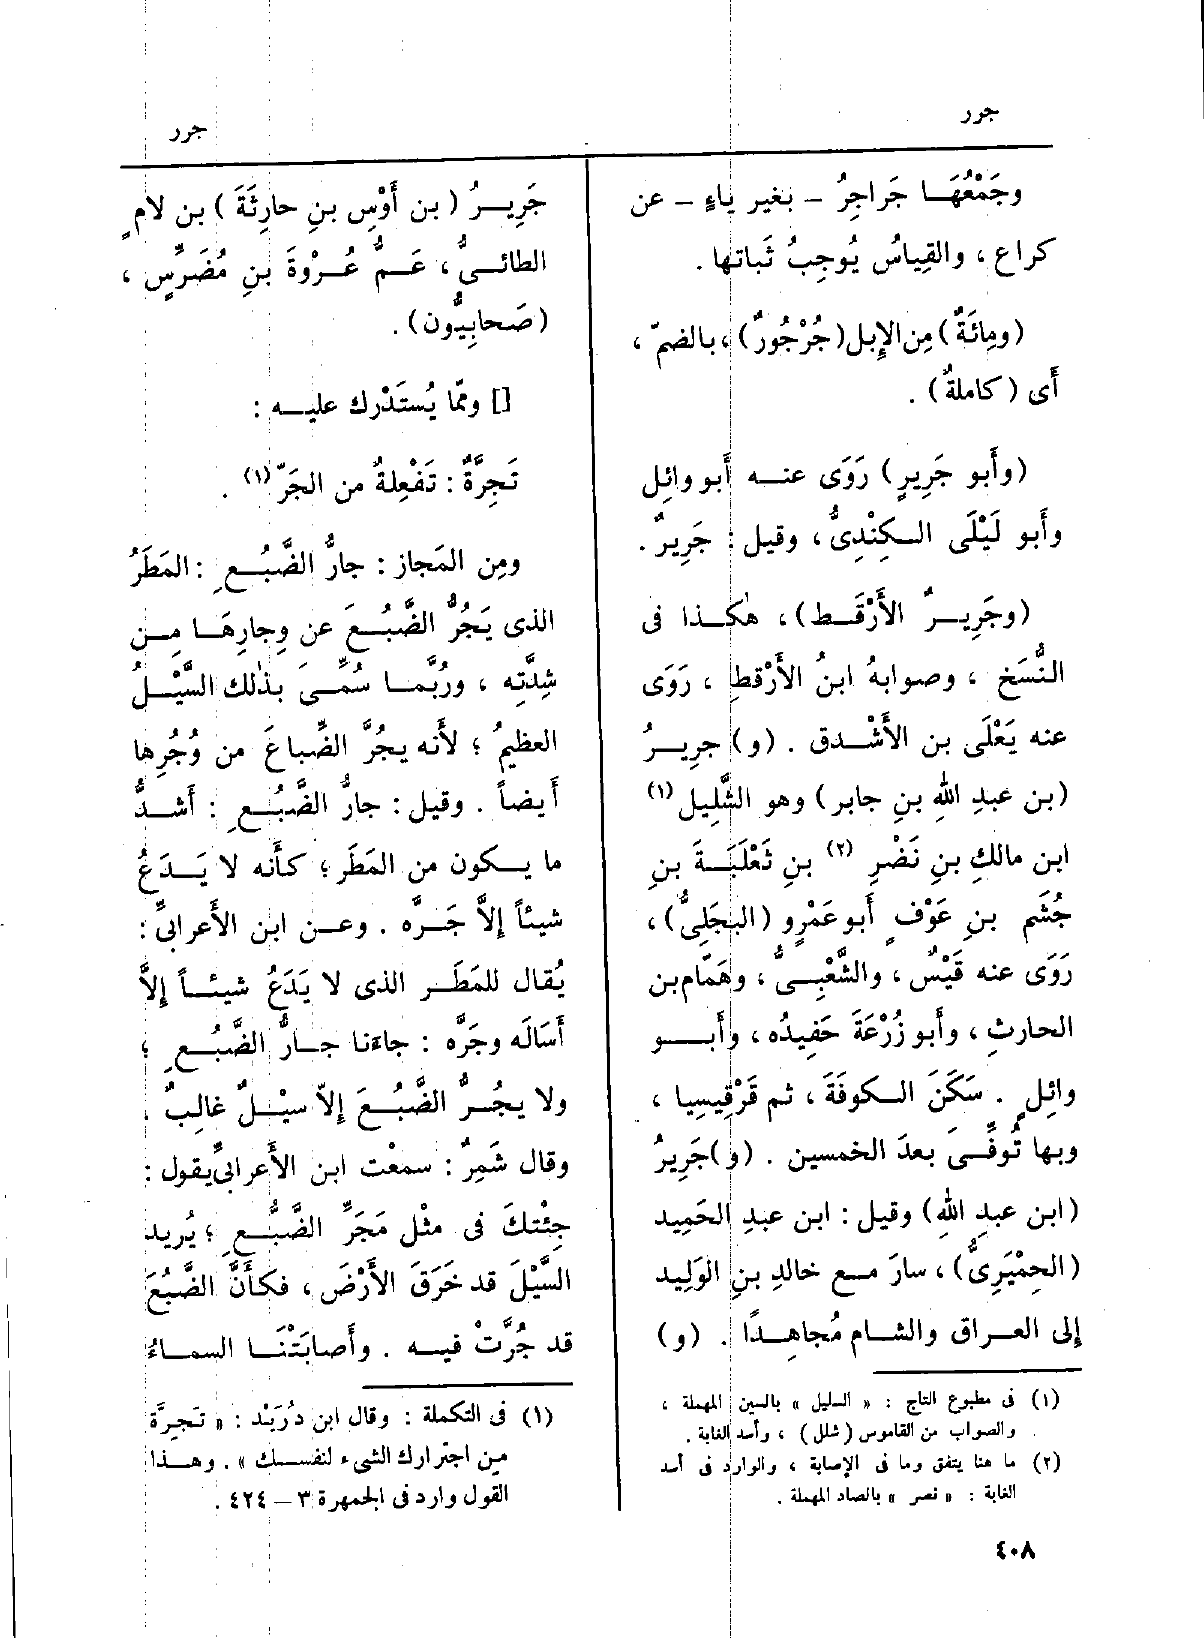 جرر
وجَمْعُهَا جَراجِرُ – بغير ياءٍ – عن
كراع ، والقِياسُ يُوجِبُ ثَباتها .
(ومِائَةٌ) مِن الإِبل (جُرْجُورٌ) ، بالضمّ ،
أَى (كاملةٌ) .
(وأَبو جَرِيرٍ) رَوَى عنه أَبو وائل
وأَبو لَيْلَى الكِنْدِىُّ ، وقيل : جَرِيرٌ .
(وجَرِيرٌ الأَرْقَط) ، هٰكذا فى
النُّسَخ ، وصوابهُ ابنُ الأَرْقطِ ، رَوَى
عنه يَعْلَى بن الأَشْدق . (و) جريرُ
(بن عبدِ اللهِ بنِ جابر) وهو الشَّلِيل (١)
ابن مالكِ بنِ نَضْرِ (٢) بنِ ثَعْلَبَةَ بنِ
جُشَم بنِ عَوْفٍ أَبو عَمْرٍو (البَجَلِىُّ) ،
رَوَى عنه قَيْسٌ ، والشَّعْبِىُّ ، وهَمّام بن
الحارثِ ، وأَبو زُرْعَةَ حَفِيدُه ، وأَبو
وائِلٍ . سَكَنَ الكوفَةَ ، ثم قَرْقِيسِيا ،
وبها تُوفِّىَ بعدَ الخمسين . (و) جَرِيرُ
(ابن عبدِ اللهِ) وقيل : ابن عبدِ الحَمِيد
(الحِمْيَرِىُّ) ، سارَ مع خالدِ بنِ الوَلِيد
إلى العراق والشام مُجاهِدًا . (و)
(١) فى مطبوع التاج : « السليل » بالسين المهملة ،
والصواب من القاموس (شلل) ، وأسد الغابة .
(٢) ما هنا يتفق وما فى الإصابة ، والوارد فى أسد
الغابة : « نصر » بالصاد المهملة .
٤٠٨
جرر
جَرِيرُ (بن أَوْسِ بنِ حارِثَةَ) بن لأمٍ
الطائىُّ ، عَمُّ عُرْوةَ بنِ مُضَرِّسٍ ،
(صَحابِيُّون) .
[] وممّا يُستَدْرك عليه :
تَجِرَّةٌ : تَفْعِلةٌ من الجَرّ (١) .
ومِن المَجاز : جارُّ الضَّبُعِ : المَطَرُ
الذى يَجُرُّ الضَّبُعَ عن وِجارِهَا مِن
شِدَّتِه ، ورُبَّما سُمِّىَ بذٰلك السَّيْلُ
العظيمُ ؛ لأَنه يجُرُّ الضِّباعَ من وُجُرِها
أَيضاً . وقيل : جارُّ الضَّبُعِ : أَشدُّ
ما يكون من المَطَر ؛ كأَنه لا يَدَعُ
شيئاً إلاَّ جَرَّه . وعن ابن الأَعرابىِّ :
يُقال للمَطَر الذى لا يَدَعُ شيئاً إلاَّ
أَسَالَه وجَرَّه : جاءَنا جارُّ الضَّبُعِ ؛
ولا يجُرُّ الضَّبُعَ إلاّ سيْلٌ غالبٌ .
وقال شَمِرٌ : سمعْت ابن الأَعرابىِّ يقول :
جِئْتكَ فى مثْل مَجَرِّ الضَّبُعِ ؛ يُريد
السَّيْلَ قد خَرَقَ الأَرْضَ ، فكأَنَّ الضَّبُعَ
قد جُرَّتْ فيه . وأَصابَتْنَا السماءُ
(١) فى التكملة : وقال ابن دُرَيْد : « تَجِرَّة
من اجترارك الشىء لنفسك » . وهذا
القول وارد فى الجمهرة ٣ – ٤٢٤ .